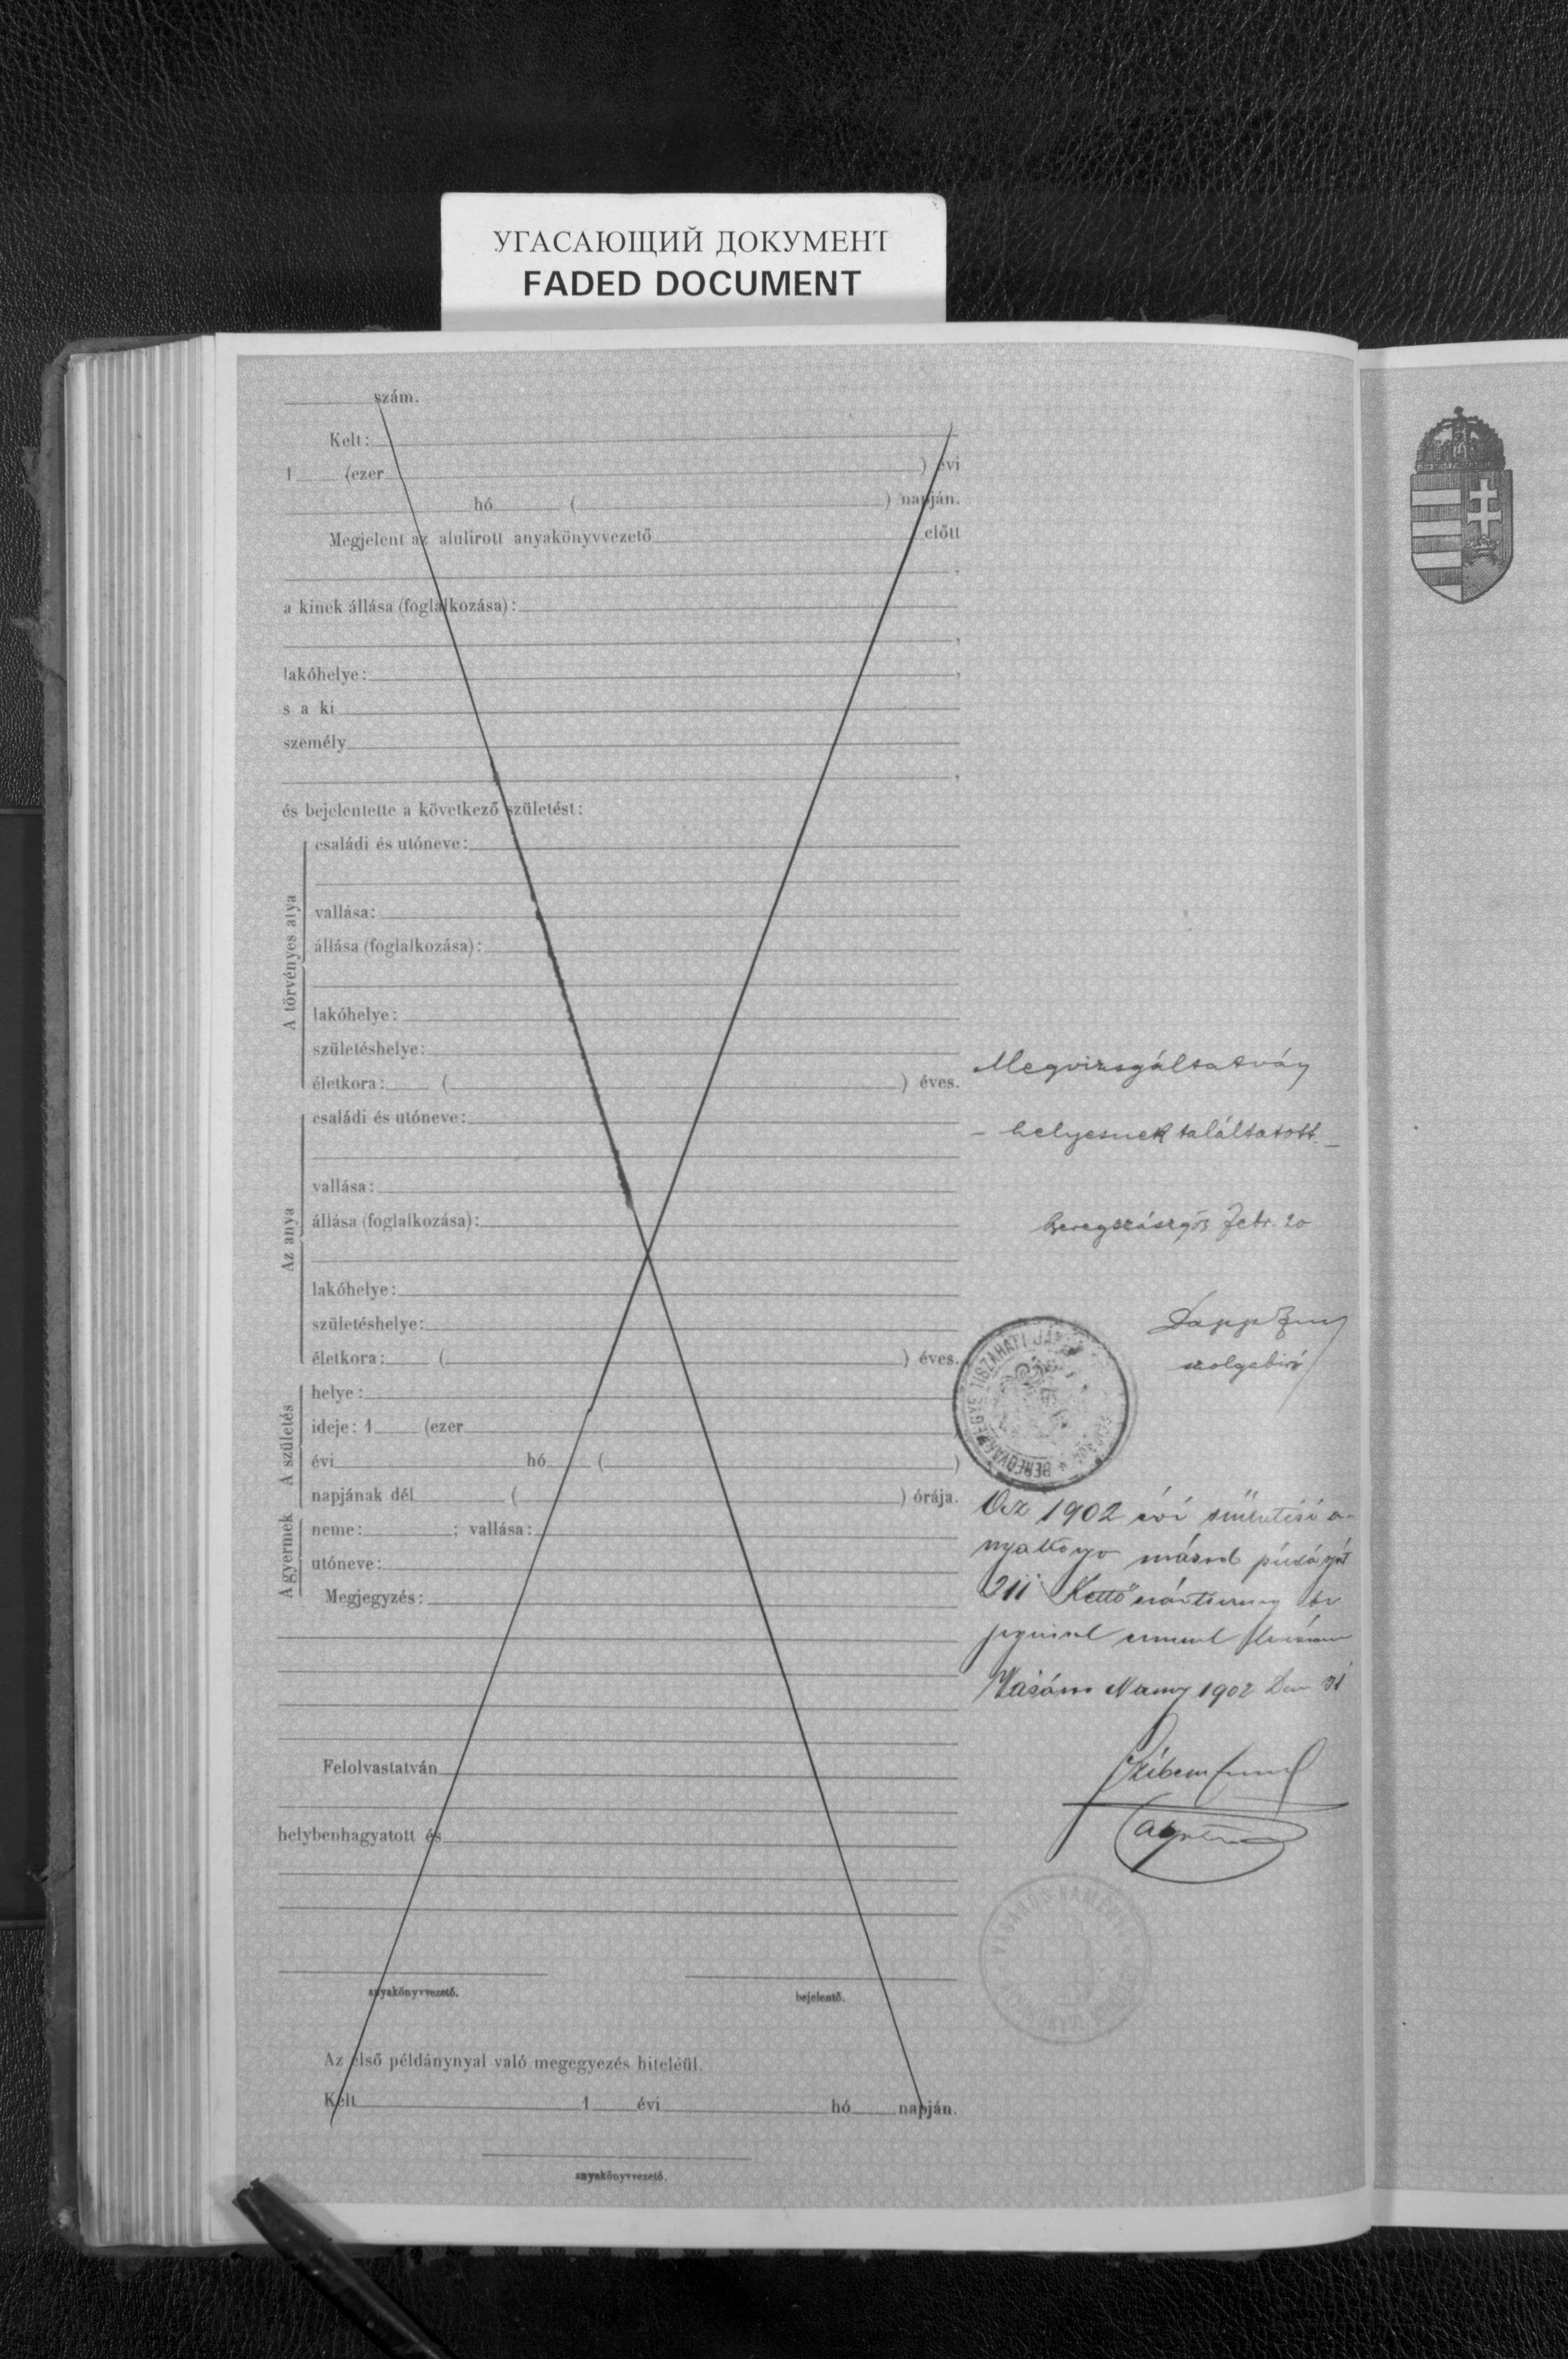 УГАСАЮЩИЙ ДОКУМЕНТ
FADED DOCUMENT
szám.
Kelt:
1 (ezer ) évi
hó ( ) napján.
Megjelent az alulirott anyakönyvvezető előtt
,
a kinek állása (foglalkozása):
,
lakóhelye: ,
s a ki
személy
,
és bejelentette a következő születést:
A törvényes atya
családi és utóneve:
vallása:
állása (foglalkozása):
lakóhelye:
születéshelye:
életkora: ( ) éves.
Az anya
családi és utóneve:
vallása:
állása (foglalkozása):
lakóhelye:
születéshelye:
életkora: ( ) éves.
A születés
helye:
ideje: 1 (ezer
évi hó ( )
napjának dél ( ) órája.
A gyermek
neme: ; vallása:
utóneve:
Megjegyzés:
Felolvastatván
helybenhagyatott és
anyakönyvvezető. bejelentő.
Az első példánynyal való megegyezés hiteléül.
Kelt 1 évi hó napján.
anyakönyvvezető.
Megvizsgáltatván
– helyesnek találtatott. –
Beregszász Febr. 20
szolgabiró
TISZAHÁTI
Az 1902 évi
másod
211 Kettő
1902 31